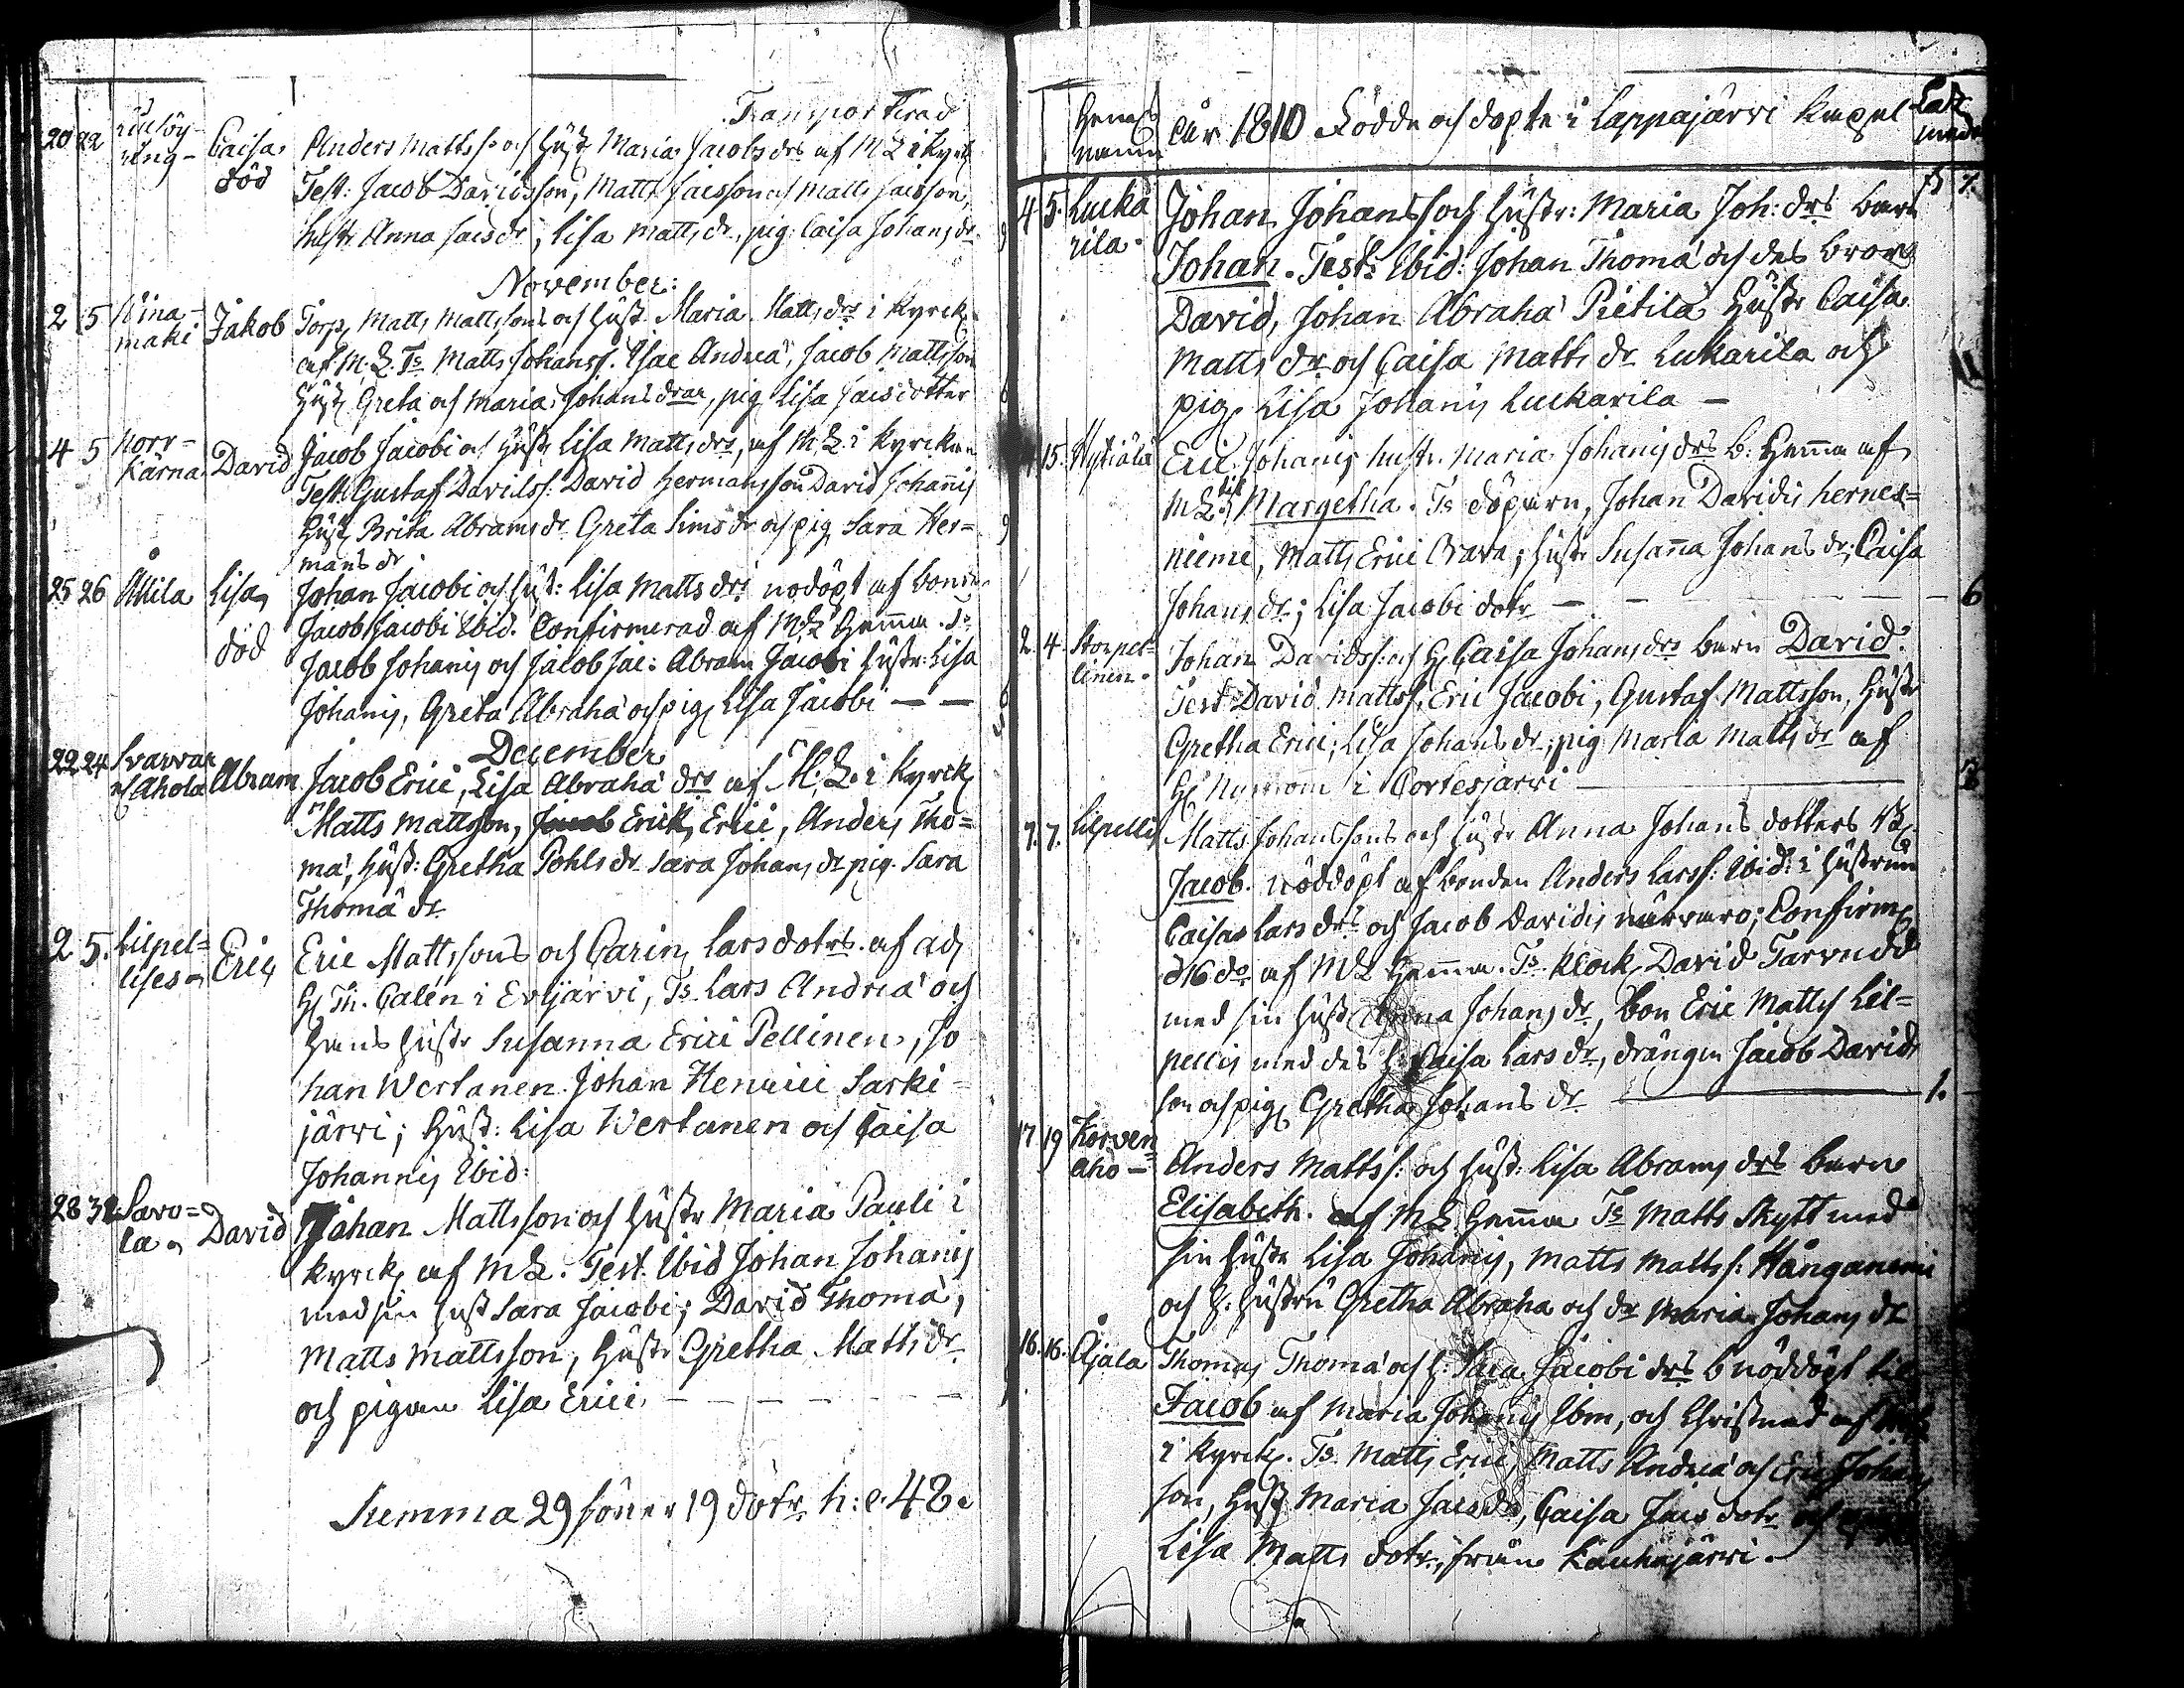 Transporterad
20 22 Caisa Anders Matts s. och Hust Maria Jacobs drs af M.L. i Kyrk
död Test: Jacob Davidsson, Matts Jacsson och Matts Jacsson,
hustr Anna Jacs dr, Lisa Matts dr, pig. Caisa Johans dr
November:
2 5 Nina- Jakob Torp. Matts Mattssons och Hust Maria Matts drs i Kyrck
mäki af M.L. Ts Matts Johanss. Isac Andreä, Jacob Mattsson
Hust. Greta och Maria Johans drar, pig Lisa Jacs dotter
4 5 Norr- David Jacob Jacobi och Hust Lisa Matts drs, af M.L. i Kyrckan
Kärna Test: Gustaf Davidss. David Hermansson David Johannis
Hust Brita Abrams dr Greta Sims dr och pig Sara Her=
mans dr 9
25 26 Ahila Lisa Johan Jacobi och Hust: Lisa Matts drs nödöpt af bond
död Jacob Jacobi Ibid. Confirmerad af M.L. Hemma. Ts
Jacob Johanis och Jacob Jac: Abram Jacobi Hustr: Lisa
Johanis, Greta Abraha och pig Lisa Jacobi — —
December
22 24 Svarvar Abram Jacob Erici, Lisa Abraha drs af M.L. i Kyrck
Ahola Matts Mattsson, Erick Erici, Anders Tho=
mä, Hust: Gretha Pohls dr Sara Johans dr pig. Sara
Thomä dr
2 5. Lilpel= Eric Eric Mattssons och Carin Lars dotrs af adj
lises H. Th. Calén i Evijärvi, Ts Lars Andreä och
Hans Hustr Susanna Erici Pellinen, Jo
han Wertanen. Johan Henrici Särki=
järvi; Hust: Lisa Wertanen och Caisa
Johannis Ibid:
28 31 Savo= David Johan Mattsson och Hustr Maria Pauli i
la Kyrck af M.L. Test. Ibid Johan Johanis
med sin Hust Sara Jacobi; David Thomä,
Matts Mattsson, Hustr Gretha Matts dr
och pigan Lisa Erici —
Summa 29 söner 19 dotr. h: e: 48.
Hems
namn År 1810 Födde och döpte i Lappajärvi Kapel
4 5. Lucka Johan Johanss och Hustr: Maria Joh: drs barn
rila. Johan. Test: Ibid: Johan Thomä och des bror
David, Johan Abraha Pietilä Hustr Caisa
Matts dr och Caisa Matts dr Lukarila och
pig. Lisa Johanis Luckarila —
15. Hytiälä Eric Johanis hustr. Maria Johanis drs b: Hemma af
M.L. till Margetha. Ts döparn, Johan Davidis hernes=
niemi, Matts Erici Crava; Hustr Susanna Johans dr; Caisa
Johans dr; Lisa Jacobi dotr — 6
2. 4. Storpel= Johan Davidss: och H. Caisa Johans drs barn David.
linen. Test: David Mattss. Eric Jacobi, Gustaf Mattsson, Hustr
Gretha Erici; Lisa Johans dr; pig Maria Matts dr af
H. i Cortesjärvi
7. 7. Lilpellis Matts Johanssons och Hustr Anna Johans dotters B.
Jacob. nöddöpt af bonden Anders Larss: Ibid: i Hustrun
Caisas Lars drs och Jacob Davidis närvaro; Confirm.
d 16 do af M.L. Hemma. Ts Klock. David Tarvudd
med sin Hust Anna Johans dr, bon Eric Matts Lil=
pellis med des H: Caisa Lars dr, drängen Jacob Davids
son och pig. Gretha Johans dr 1.
17 19 Korven= Anders Mattss: och Hust: Lisa Abrams drs barn
aho — Elisabeth. af M.L. Hemma Ts Matts Skytt med
sin Hustr Lisa Johanis, Matts Mattss: Hånganemi
och H. Hustru Gretha Abraha och dr Maria Johans dr
16. 16. Äjälä Thomas Thomä och H: Jacobi drs b nöddöpt til
Jacob af Maria Johanis Ibm, och Christnad af
i Kyrck. Ts. Matts Erici, Matts Andreä och Eric Johans
son, Hust Maria Jacs dr, Caisa Jacs dotr och
Lisa Matts dotr, från Kauhajärvi.